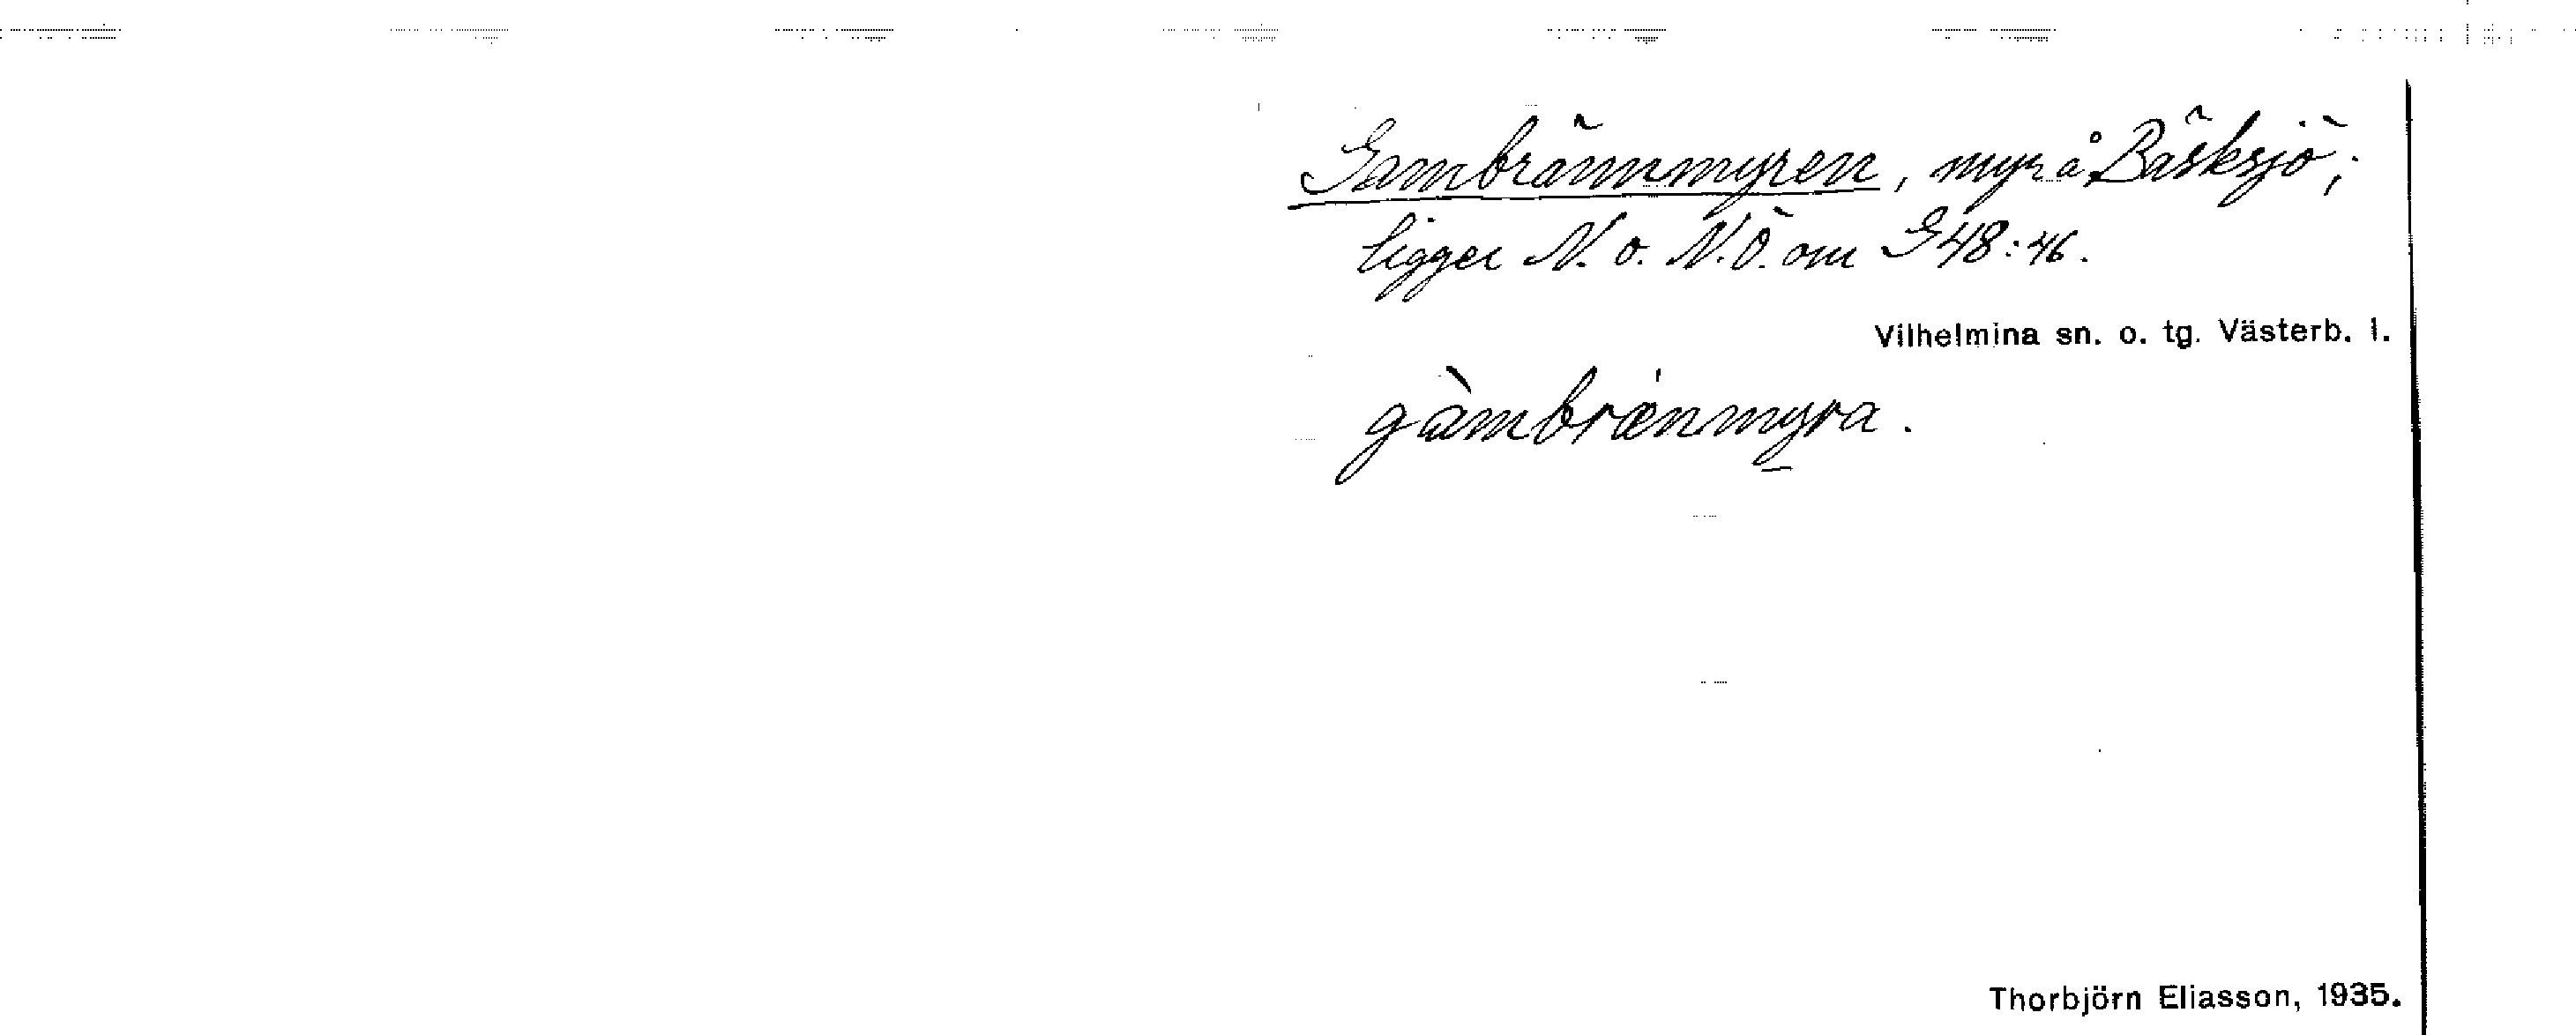 Gambrännmyren, myr å Bäsksjö;
ligger N. o. N.Ö. om G48:46.
Vilhelmina sn. o. tg. Västerb. l.
gàmbrænmyra.
Thorbjörn Eliasson, 1935.